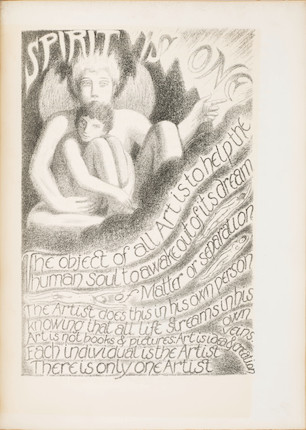 SPIRIT IS ONE
The object of all Art is to help the
human soul to awake out of its dream
of Matter or separation
The Artist does this in his own person
knowing that all life streams in his
own veins
Art is not books & pictures: Art is idea & creation
Each individual is the Artist
There is only one Artist